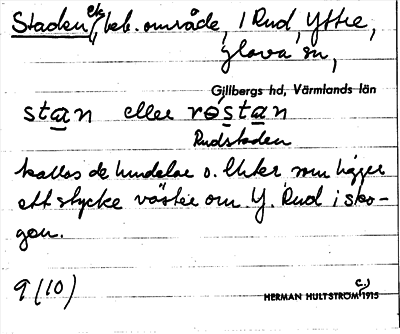 Staden etc, beb. område, 1 Rud, Yttre,
Glava sn,
Gillbergs hd, Värmlands län
stan eller róstan
Rudstaden
kallas de hundelar o. lihter som ligger
ett stycke väster om Y. Rud i sko-
gen.
9 (10)
HERMAN HULTSTRÖM c:a 1915